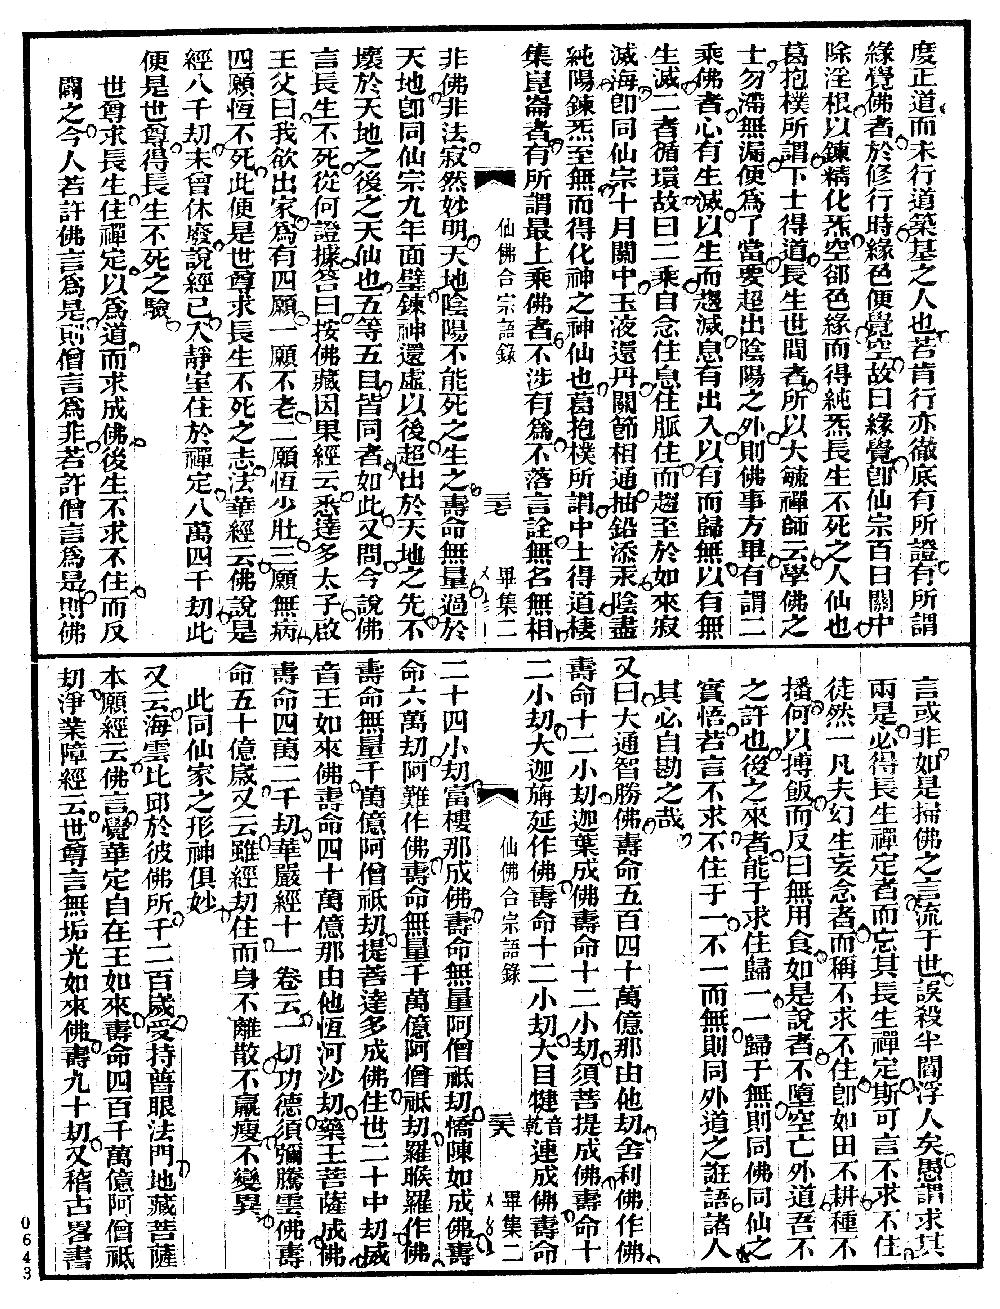 度正道而未行道築基之人也若肯行亦徹底有所證有所謂
緣覺佛者於修行時緣色便覺空故曰緣覺卽仙宗百日關中
除淫根以鍊精化炁空卻色緣而得純炁長生不死之人仙也
葛抱樸所謂下士得道長生世間者所以大毓禪師云學佛之
士勿滯無漏便爲了當要超出陰陽之外則佛事方畢有謂二
乘佛者心有生滅以生而趨滅息有出入以有而歸無以有無
生滅二者循環故曰二乘自念住息住脈住而趨至於如來寂
滅海卽同仙宗十月關中玉液還丹關節相通抽鉛添汞陰盡
純陽鍊炁至無而得化神之神仙也葛抱樸所謂中士得道棲
集崑崙者有所謂最上乘佛者不涉有爲不落言詮無名無相
仙佛合宗語錄 三七 畢集二
非佛非法寂然妙明天地陰陽不能死之生之壽命無量過於
天地卽同仙宗九年面壁鍊神還虛以後超出於天地之先不
壞於天地之後之天仙也五等五目皆同者如此又問今說佛
言長生不死從何證據答曰按佛藏因果經云悉達多太子啟
王父曰我欲出家爲有四願一願不老二願恆少壯三願無病
四願恆不死此便是世尊求長生不死之志法華經云佛說是
經八千劫未曾休廢說經已入靜室住於禪定八萬四千劫此
便是世尊得長生不死之驗
世尊求長生住禪定以爲道而求成佛後生不求不住而反
闢之今人若許佛言爲是則僧言爲非若許僧言爲是則佛
言或非如是掃佛之言流于世誤殺半閻浮人矣愚謂求其
兩是必得長生禪定者而忘其長生禪定斯可言不求不住
徒然一凡夫幻生妄念者而稱不求不住卽如田不耕種不
播何以摶飯而反曰無用食如是說者不墮空亡外道吾不
之許也後之來者能于求住歸一一歸于無則同佛同仙之
實悟若言不求不住于一不一而無則同外道之誑語諸人
其必自勘之哉
又曰大通智勝佛壽命五百四十萬億那由他劫舍利佛作佛
壽命十二小劫迦葉成佛壽命十二小劫須菩提成佛壽命十
二小劫大迦旃延作佛壽命十二小劫大目犍音乾連成佛壽命
仙佛合宗語錄 三八 畢集二
二十四小劫富樓那成佛壽命無量阿僧祇劫憍陳如成佛壽
命六萬劫阿難作佛壽命無量千萬億阿僧祇劫羅睺羅作佛
壽命無量千萬億阿僧祇劫提菩達多成佛住世二十中劫威
音王如來佛壽命四十萬億那由他恆河沙劫藥王菩薩成佛
壽命四萬二千劫華嚴經十一卷云一切功德須彌騰雲佛壽
命五十億歲又云雖經劫住而身不離散不羸瘦不變異
此同仙家之形神俱妙
又云海雲比邱於彼佛所千二百歲受持普眼法門地藏菩薩
本願經云佛言覺華定自在王如來壽命四百千萬億阿僧祇
劫淨業障經云世尊言無垢光如來佛壽九十劫又稽古畧書
0643